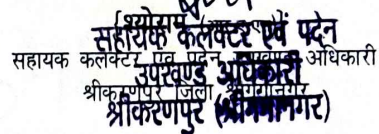 सहायक कलेक्टर एवं पदेन
सहायक कलेक्टर एवं पदेन उपखण्ड अधिकारी
उपखण्ड अधिकारी
श्रीकरणपुर जिला श्रीगंगानगर
श्रीकरणपुर (श्रीगंगानगर)